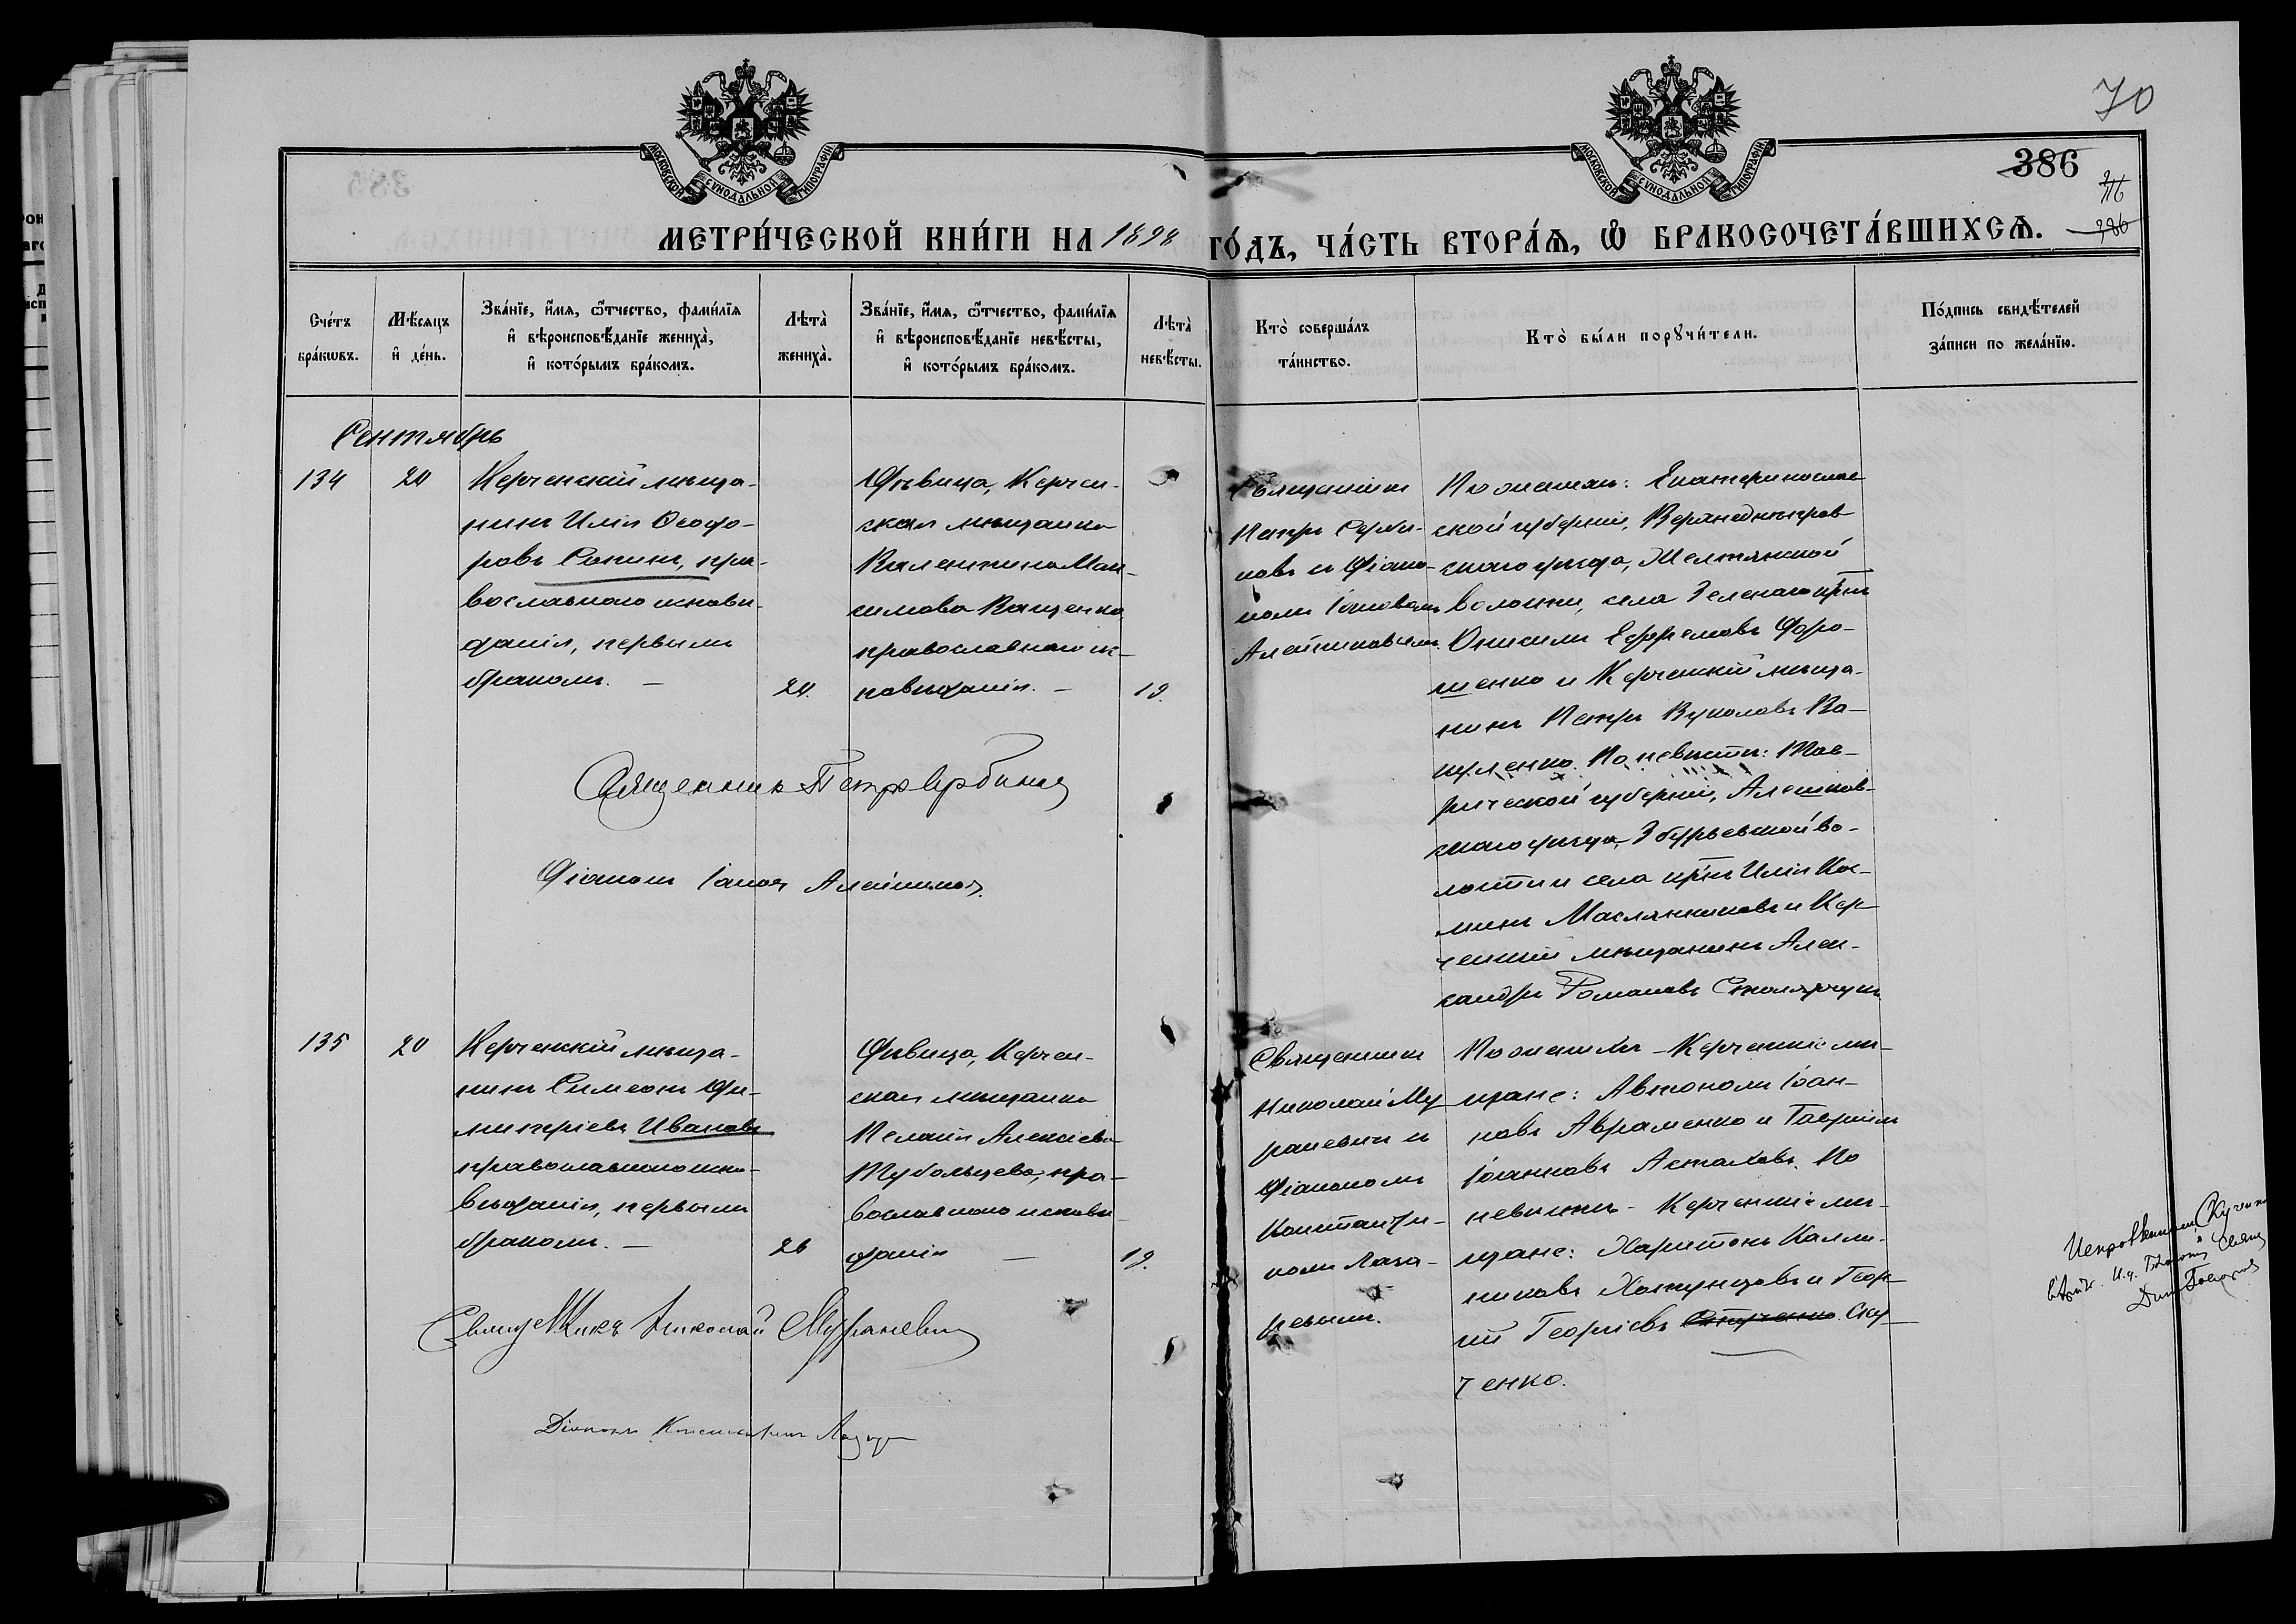 70
386
МОСКОВСКОЙ СУНОДАЛЬНОЙ ТИПОГРАФІИ
МОСКОВСКОЙ СУНОДАЛЬНОЙ ТИПОГРАФІИ
МЕТРИ́ЧЕСКОЙ КНИ́ГИ НА 1898 ГО́ДЪ, ЧА́СТЬ ВТОРА́Ѧ, Ѽ БРАКОСОЧЕТА́ВШИХСѦ.
Сче́тъ бра́кѡвъ.
Мѣ́сяцъ и҆ де́нь.
Зва́нїе, и҆́мѧ, ѻ҆́тчество, фами́лїѧ и҆ вѣроисповѣ́данїе жениха̀, и҆ кото́рымъ бра́комъ.
Лѣта̀ жениха̀.
Зва́нїе, и҆́мѧ, ѻ҆́тчество, фами́лїѧ и҆ вѣроисповѣ́данїе невѣ́сты, и҆ кото́рымъ бра́комъ.
Лѣта̀ невѣ́сты.
Кто̀ соверша́лъ та́инство.
Кто̀ бы́ли порꙋчи́тели.
По́дпись свидѣ́телей за́писи по жела́нїю.
Сентябрь
134
20
Керченскій мѣща-
нинъ Илія Ѳеодо-
ровъ Сапинъ, пра-
вославнаго исповѣ-
данія, первымъ
бракомъ. —
20.
Дѣвица, Керчен-
ская мѣщанка
Валентина Мак-
симова Ващенко
православнаго ис-
повѣданія. —
19.
Священникъ
Петръ Серби-
новъ и Діако-
номъ Іаковомъ
Алейниковымъ.
По женихѣ: Екатеринослав-
ской губерніи, Верхнеднѣпров-
скаго уѣзда, Желтянской
волости, села Зеленаго кр-нъ
Онисимъ Ефремовъ Доро-
шенко и Керченскій мѣща-
нинъ Петръ Вуколовъ Ва-
куленко. По невѣстѣ: Тав-
рической губерніи, Алешков-
скаго уѣзда, Збурьевской во-
лости и села кр-нъ Илія Кос-
минъ Маслянниковъ и Кер-
ченскій мѣщанинъ Алек-
сандръ Романовъ Столярчукъ.
Священникъ Петръ Сербиновъ
Діаконъ Іаковъ Алейниковъ.
135
20
Керченскій мѣща-
нинъ Симеонъ Ди-
митріевъ Ивановъ
православнаго испо-
вѣданія, первымъ
бракомъ. —
26
Дѣвица, Керчен-
ская мѣщанка
Пелагія Алексіева
Тубольцева, пра-
вославнаго исповѣ-
данія —
19.
Священникъ
Николай Му-
раневичъ и
Діакономъ
Константи-
номъ Лаза-
ревымъ.
По женихѣ - Керченскіе мѣ-
щане: Автономъ Іоан-
новъ Авраменко и Гавріилъ
Іоанновъ Астаховъ. По
невѣстѣ - Керченскіе мѣ-
щане: Харитонъ Калли-
никовъ Хатунцовъ и Геор-
гій Георгіевъ Ску-
ченко.
Священникъ Николай Мураневичъ
Діаконъ Константинъ Лазарев